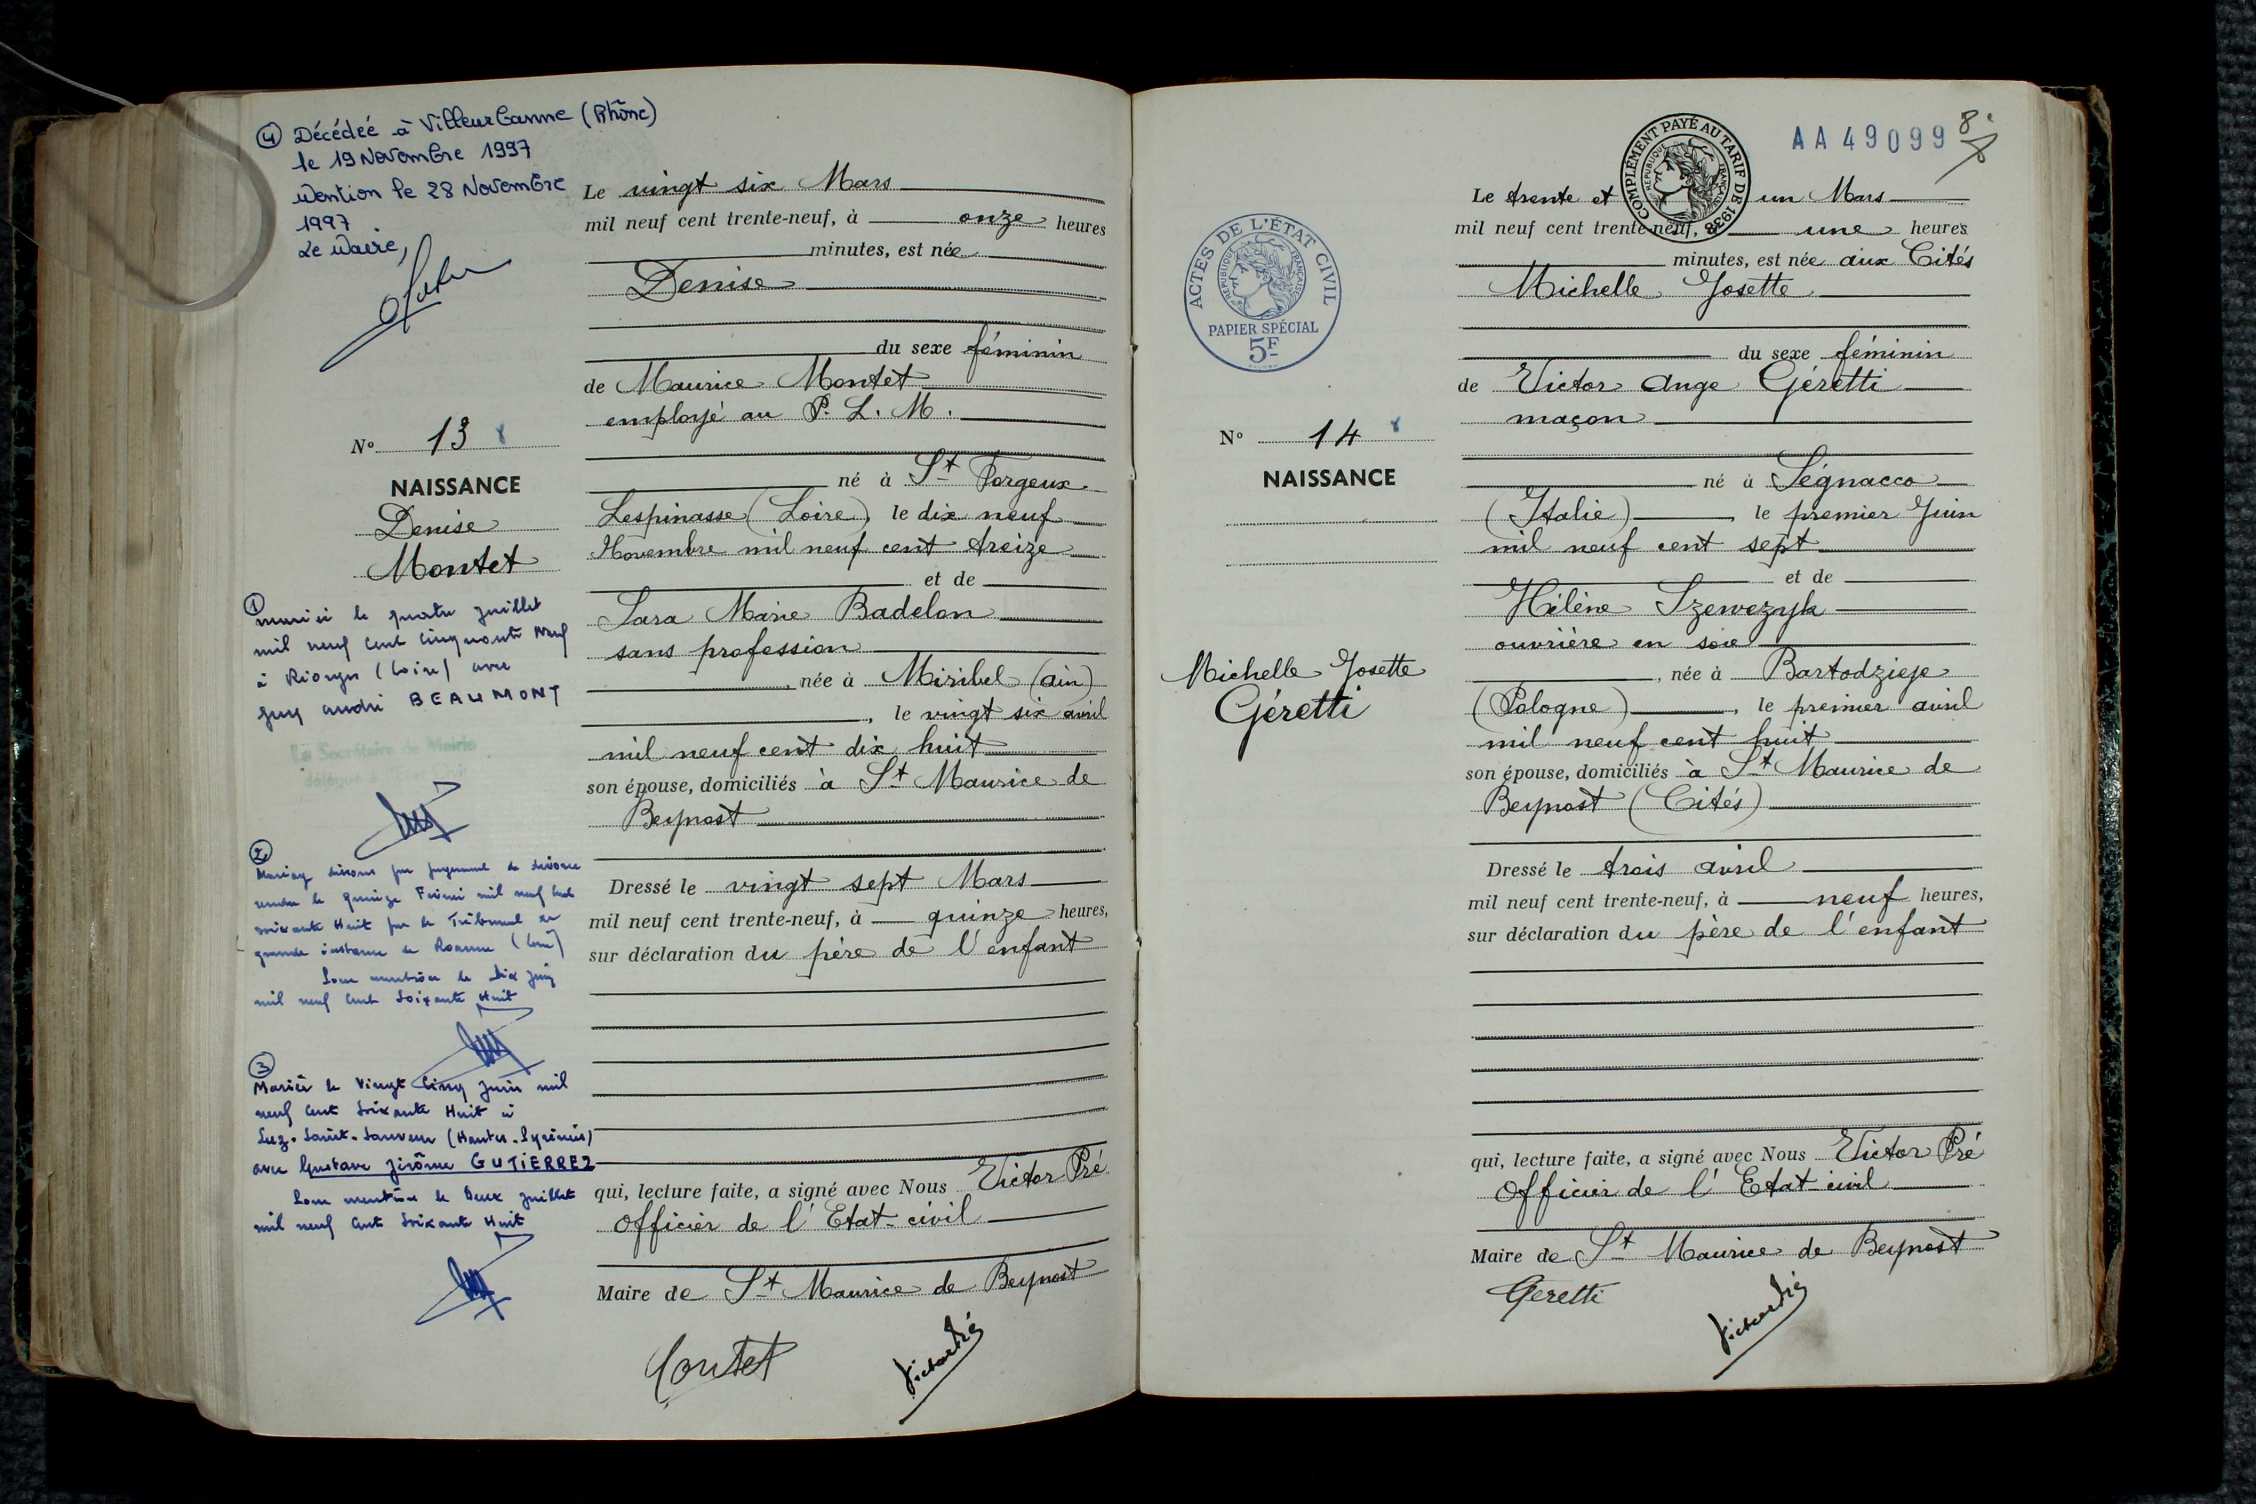 ④ Décédée à Villeurbanne (Rhône)
le 19 Novembre 1997
Mention le 28 Novembre
1997
Le Maire,
N° 13
NAISSANCE
Denise
Montet
①
mariée le quatre juillet
mil neuf cent cinquante neuf
à Riorges (Loire) avec
Guy André BEAUMONT
Le Secrétaire de Mairie
délégué à l'Etat Civil
②
Mariage dissous par jugement de divorce
rendu le quinze Février mil neuf cent
soixante Huit par le Tribunal de
grande instance de Roanne (Loire)
Sous mention le dix juin
mil neuf cent soixante Huit
③
Mariée le Vingt Cinq juin mil
neuf cent soixante Huit à
Luz-Saint-Sauveur (Hautes-Pyrénées)
avec Gustave Jérôme GUTIERREZ
Sous mention le Deux juillet
mil neuf cent soixante Huit
Le vingt six Mars
mil neuf cent trente-neuf, à onze heures
minutes, est née
Denise
du sexe féminin
de Maurice Montet
employé au P. L. M.
né à St Forgeux
Lespinasse (Loire), le dix neuf
Novembre mil neuf cent treize
et de
Sara Marie Badelon
sans profession
, née à Miribel (ain)
, le vingt six avril
mil neuf cent dix huit
son épouse, domiciliés à St Maurice de
Beynost
Dressé le vingt sept Mars
mil neuf cent trente-neuf, à quinze heures,
sur déclaration du père de l'enfant
qui, lecture faite, a signé avec Nous Victor Pré
Officier de l'Etat-civil
Maire de St Maurice de Beynost
Montet
Victor Pré
AA 49099
8.
COMPLÉMENT PAYÉ AU TARIF DE 1938
RÉPUBLIQUE FRANÇAISE
ACTES DE L'ÉTAT CIVIL
RÉPUBLIQUE FRANÇAISE
PAPIER SPÉCIAL
5F
N° 14
NAISSANCE
Michelle Josette
Géretti
Le trente et un Mars
mil neuf cent trente-neuf, à une heures
minutes, est née aux Cités
Michelle Josette
du sexe féminin
de Victor Ange Géretti
maçon
né à Ségnacco
(Italie), le premier Juin
mil neuf cent sept
et de
Hélène Szewezyk
ouvrière en soie
, née à Bartodzieje
(Pologne), le premier avril
mil neuf cent huit
son épouse, domiciliés à St Maurice de
Beynost (Cités)
Dressé le trois avril
mil neuf cent trente-neuf, à neuf heures,
sur déclaration du père de l'enfant
qui, lecture faite, a signé avec Nous Victor Pré
Officier de l'Etat-civil
Maire de St Maurice de Beynost
Geretti
Victor Pré